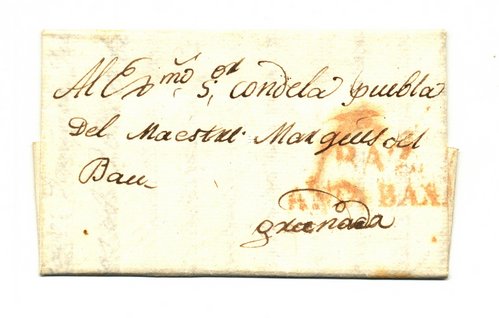 Al Exmo. Sor. Conde la Puebla
Del Maestre Marques del
Bau
BAZA
ANDA BAXA
Granada